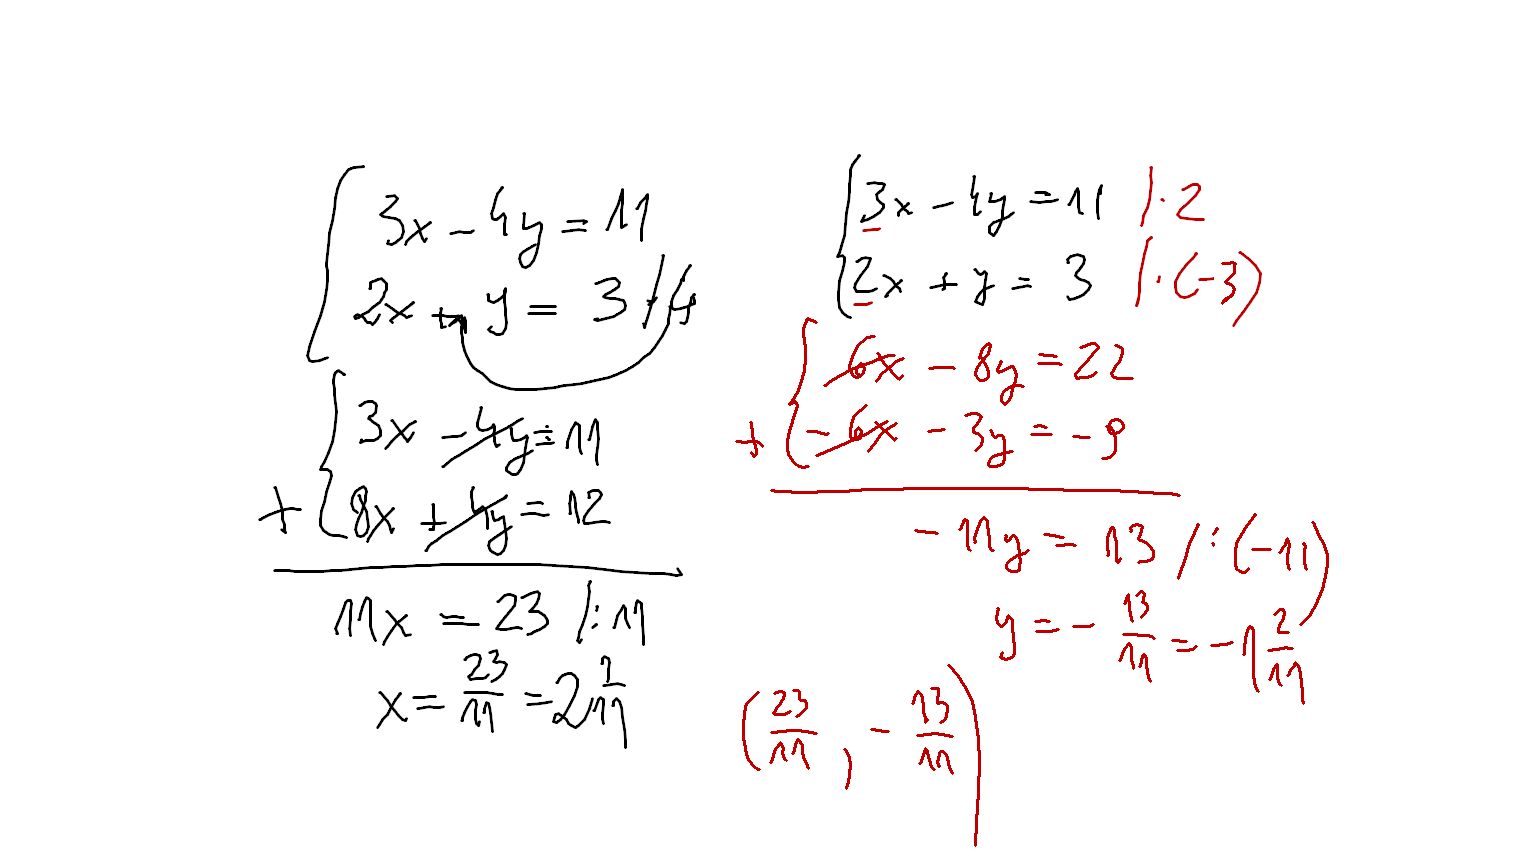 3x - 4y = 11
2x + y = 3 /·4
3x - 4y = 11
+ 8x + 4y = 12
11x = 23 /:11
x = 23/11 = 2 1/11
3x - 4y = 11 /·2
2x + y = 3 /·(-3)
6x - 8y = 22
+ -6x - 3y = -9
-11y = 13 /:(-11)
y = - 13/11 = -1 2/11
(23/11, - 13/11)